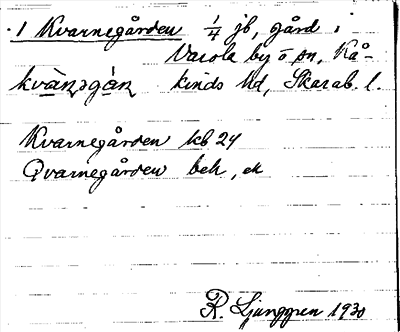 1 Kvarnegården 1/4 jb, gård i
Varola by o sn, Kå-
kinds hd, Skarab. l.
Kvarnegården kb 24
Qvarnegården bek, ek
R. Ljunggren 1930